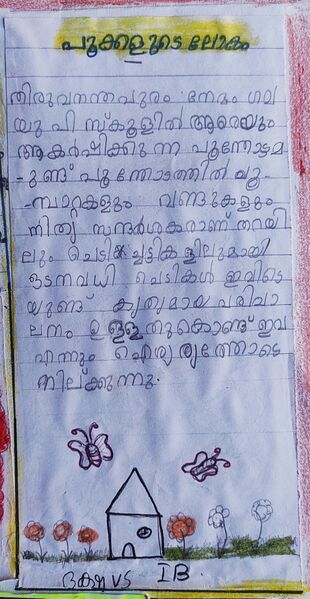 പൂക്കളുടെ ലോകം
തിരുവനന്തപുരം നേമം ഗവ
യു പി സ്കൂളിൽ ആരെയും
ആകർഷിക്കു ന്ന പൂന്തോട്ടമ
-ുണ്ട് പൂന്തോട്ടത്തിൽ പൂ-
-മ്പാറ്റകളും വണ്ടുകളും
നിത്യ സന്ദർശകരാണ് തറയി
ലും ചെടിച്ചട്ടിക ളിലുമായി
ഒട്ടനവധി ചെടികൾ ഇവിടെ
യുണ്ട് കൃത്യമായ പരിപാ
ലനം ഉള്ളതുകൊണ്ട് ഇവ
എന്നും ഐശ്വര്യത്തോടെ
നില്ക്കുന്നു.
VS IB